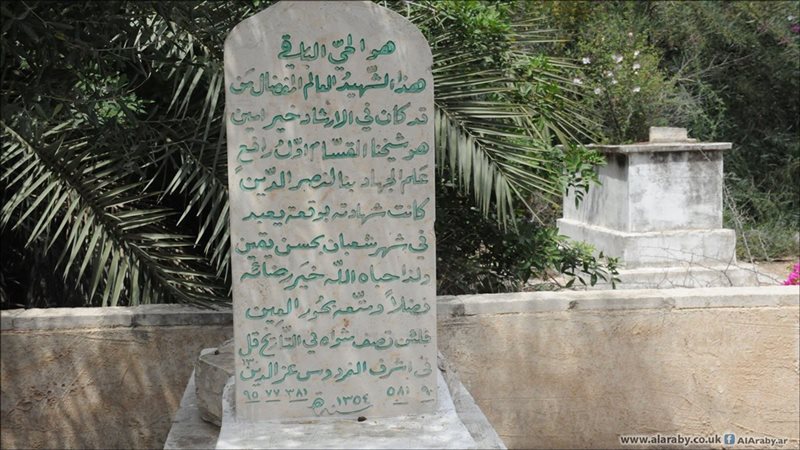 هو الحيّ الباقي
هذا الشّهيدُ العالم المفضال مَن
قد كان في الارشاد خير امين
هو شيخنا القسّام اوّلُ رافعٍ
عَلم الجهاد بنا لنصر الدّينِ
كانت شهادته بوقعة يعبد
في شهر شعبان بحسن يقين
ولذا حباه اللّه خير رضائه
فضلاً ومتّعه بحُور العين
فلئن تصف مثواه في التّاريخ قل
في اشرف الفردوس عز الدين
٩٠ ٥٨١ ٣٨١ ٧٧ ٩٥
سنة ١٣٥٤ هـ
www.alaraby.co.uk AlAraby.ar